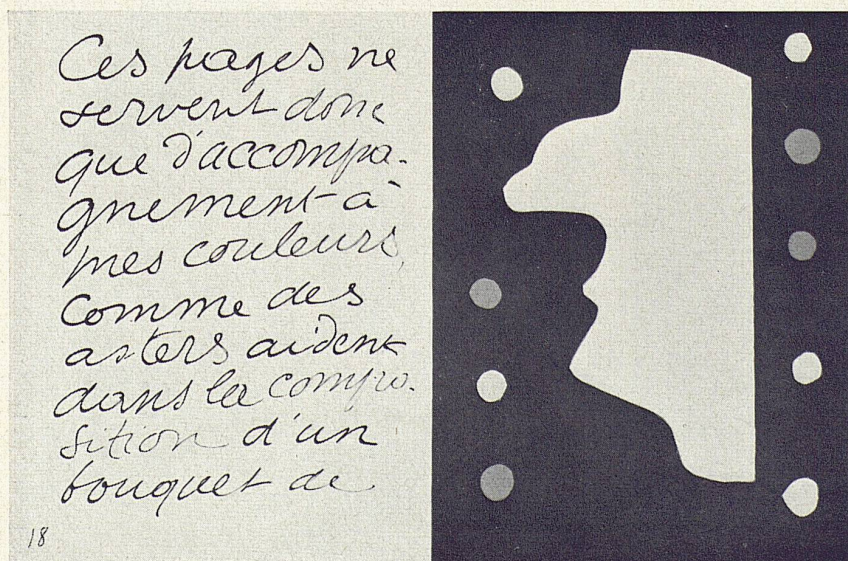 Ces pages ne
servent donc
que d'accompa-
gnement à
mes couleurs,
comme des
asters aident
dans la compo-
sition d'un
bouquet de
18